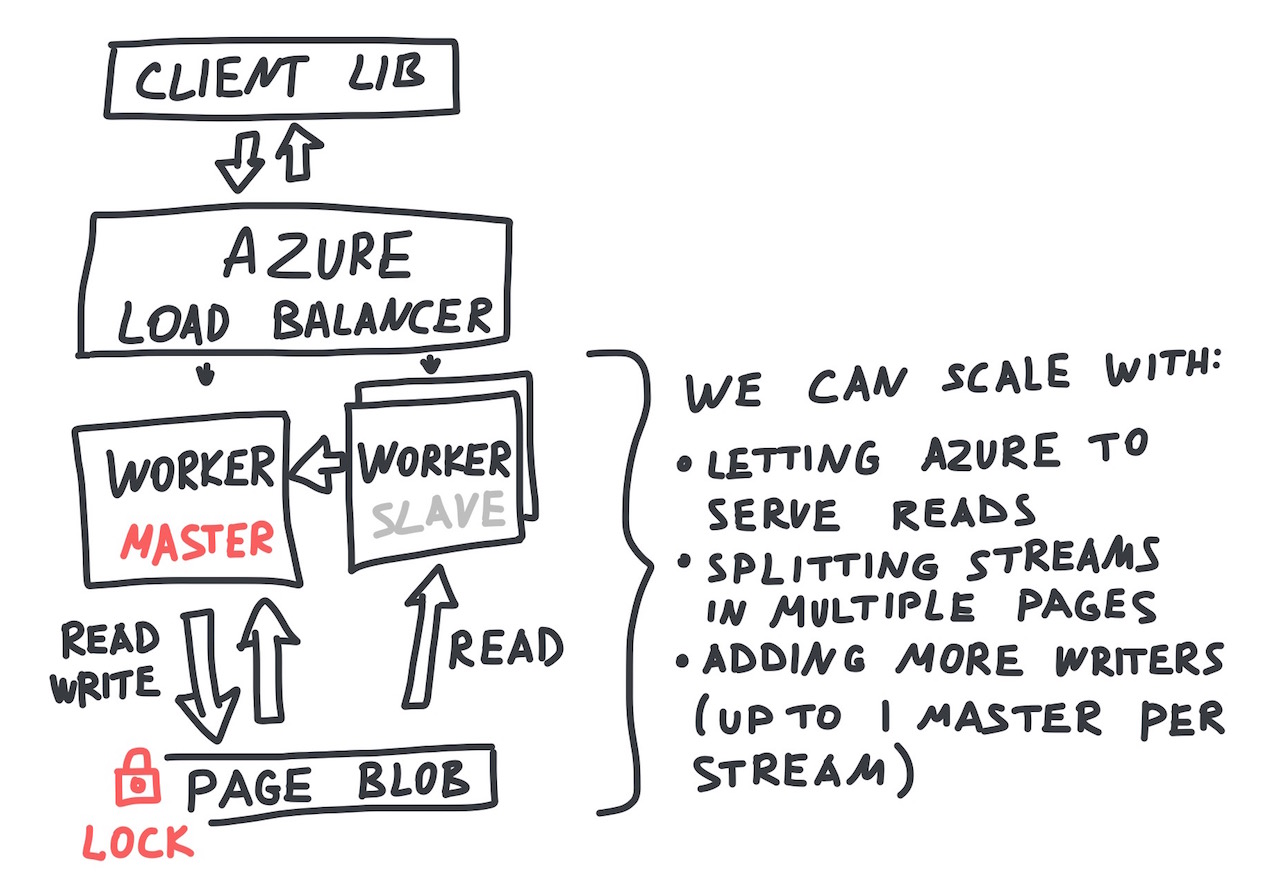 CLIENT LIB
AZURE
LOAD BALANCER
WORKER
MASTER
WORKER
SLAVE
READ
WRITE
READ
PAGE BLOB
LOCK
WE CAN SCALE WITH:
• LETTING AZURE TO
SERVE READS
• SPLITTING STREAMS
IN MULTIPLE PAGES
• ADDING MORE WRITERS
(UP TO 1 MASTER PER
STREAM)